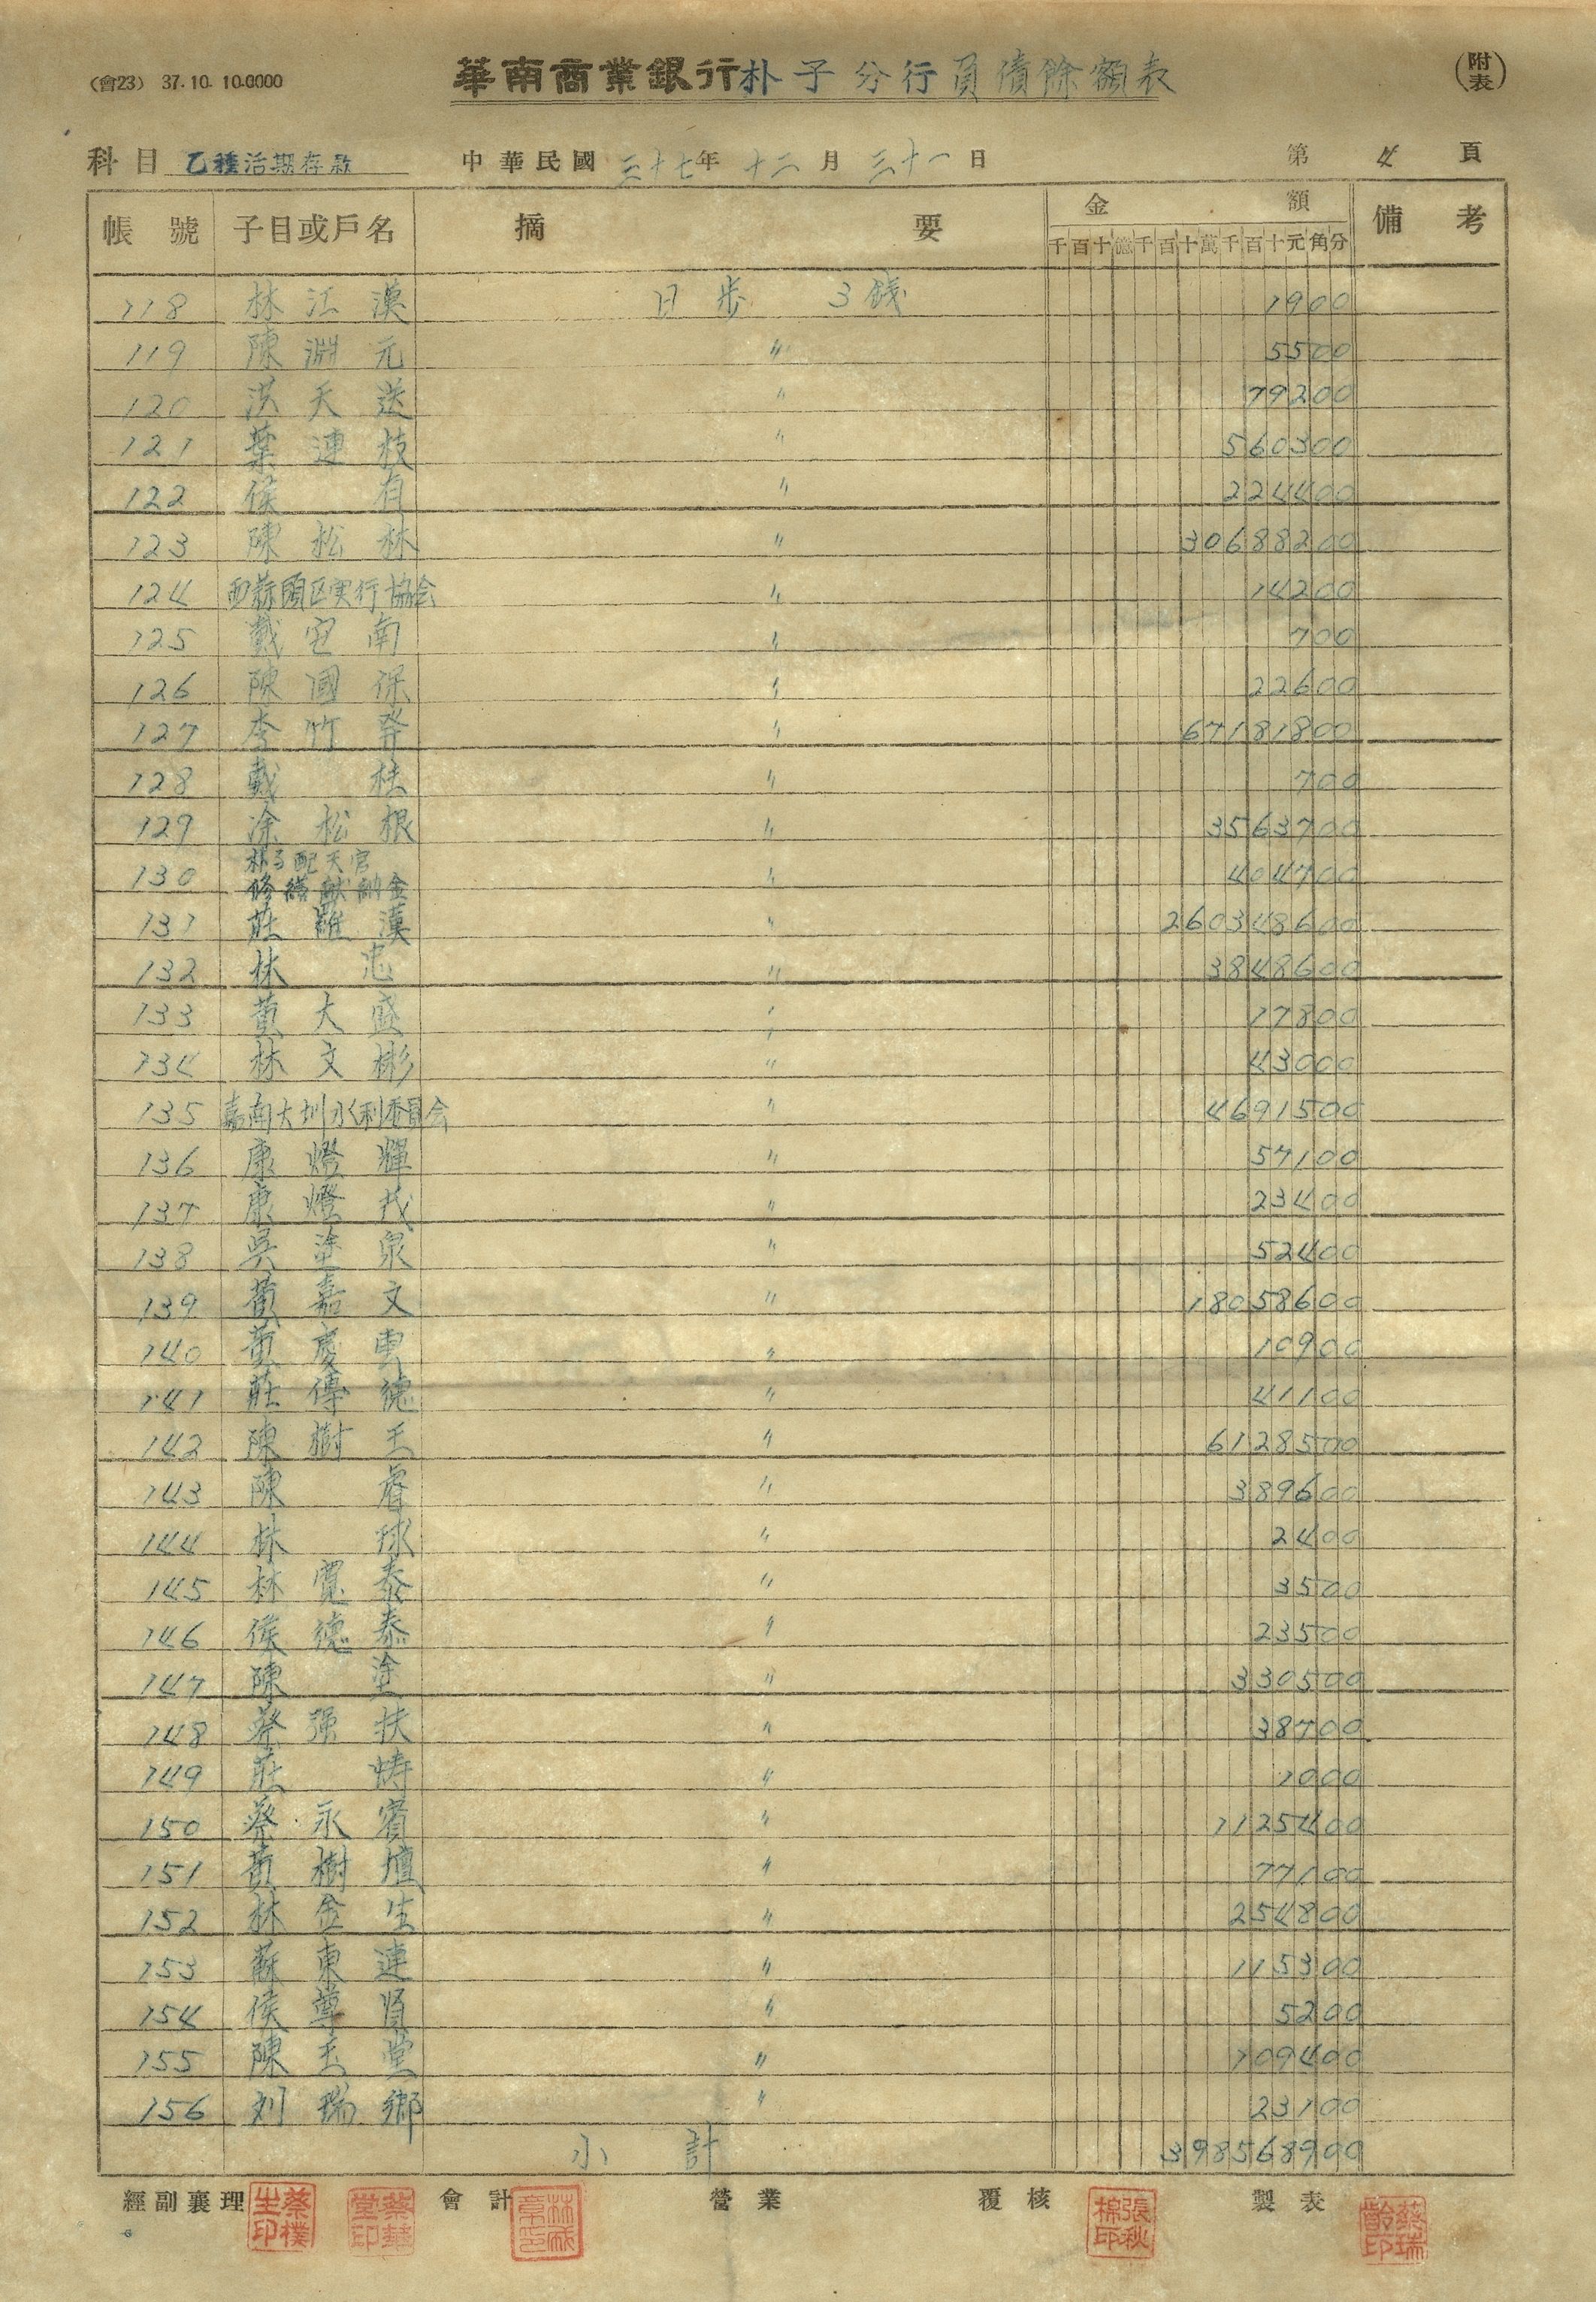 (會23) 37.10.10.0000
華南商業銀行朴子分行負債餘額表
(附表)
科目 乙種活期存款 中華民國 三十七年 十二月 三十一日 第 4 頁
帳號 子目或戶名 摘要 金額 備考
千百十億千百十萬千百十元角分
118 林江漢 日步 3錢 1900
119 陳淵元 〃 5500
120 洪天送 〃 79200
121 葉連枝 〃 560300
122 侯有 〃 224400
123 陳松林 〃 30688200
124 蒜頭区実行協会 〃 14200
125 戴南 〃 700
126 陳國保 〃 22600
127 李竹 〃 67181800
128 戴桂 〃 700
129 涂松根 〃 3563700
130 朴子配天宮修繕献納金 〃 404700
131 莊羅漢 〃 260348600
132 林忠 〃 3848600
133 黃大盛 〃 17800
134 林文彬 〃 43000
135 嘉南大圳水利委員会 〃 4691500
136 康燈輝 〃 57100
137 康燈茂 〃 23400
138 吳塗泉 〃 52400
139 黃嘉文 〃 18058600
140 黃慶雲 〃 10900
141 莊傳德 〃 41100
142 陳樹玉 〃 6128500
143 陳 〃 389600
144 林球 〃 2400
145 林寬泰 〃 3500
146 侯德泰 〃 23500
147 陳塗 〃 330500
148 蔡强扶 〃 38700
149 莊 〃 1000
150 蔡永賓 〃 1125400
151 黃樹壇 〃 77100
152 林金生 〃 254800
153 蘇東連 〃 115300
154 侯尊賢 〃 5200
155 陳玉堂 〃 109400
156 刘瑞鄉 〃 23100
小計 398568900
經副襄理 蔡樸生印 蔡華堂印 會計 營業 覆核 張秋棉印 製表 蔡瑞齡印